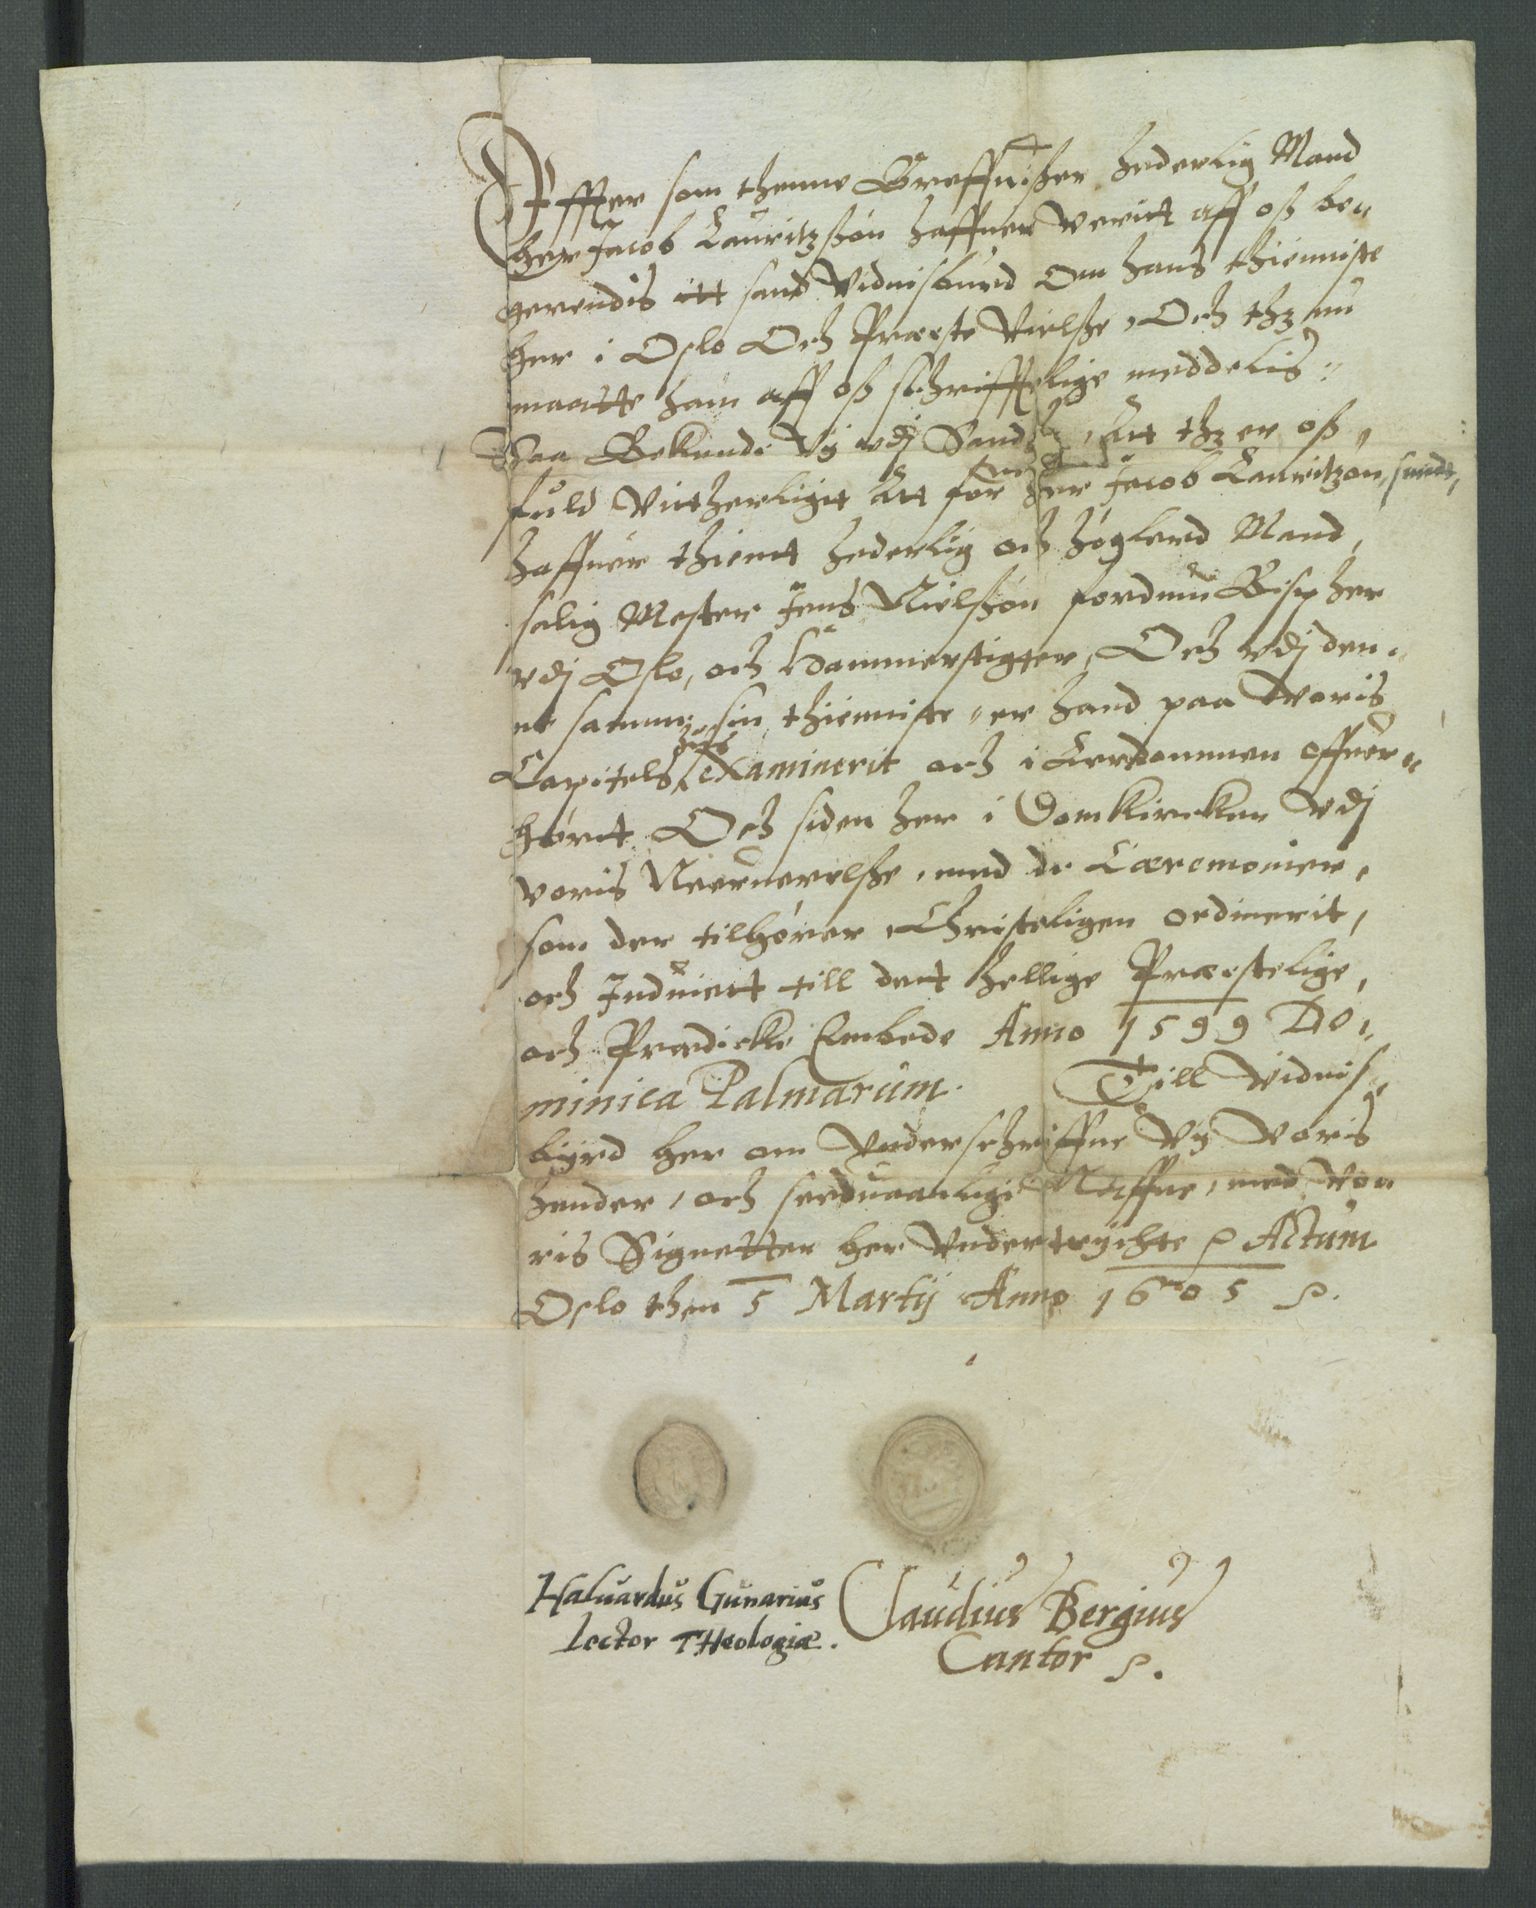 Effter som thenne Breffuißer hederlig Mand
her Jacob Lauritzsøn haffuer verit aff oß be„
gerendis itt sand Vidnisburd Om hans thienniste
her i Oslo Och Præste Vielße, Och thz nu
maatte ham aff oß schrifftelige meddelis„
Thaa Bekiende Vy vdj Sandhed, Att thz er oß,
fuld vitherligt Att for her Jacob Lauritzøn,
haffuer thient hederlig och høglerd Mand,
salig Mester Jens Nielßøn fordum Bisp her
vdj Oslo, och Hammerstigter, Och vdj den„
ne samme sin thienniste, er hand paa Voris
Capitels huus examinerit och i Lerdommen offuer„
hørt Och siden her i Domkircken vdj
voris Neeruerelße, med de Cæremonier,
som der tilhører, Christeligen ordinerit,
och Induiett till dett hellige Præstelige,
och Prædicke Embede Anno 1599 Do„
minica Palmarum. Till Vidnis„
byrd her om Vnderschriffue Vy Voris
hender, och seeduaanlige Naffne, med Vo„
ris Signetter her Vndertrychte Actum
Oslo then 5 Martij Anno 1605
Haluardus Gunarius
Lector THeologiæ.
Claudius Bergius
Cantor